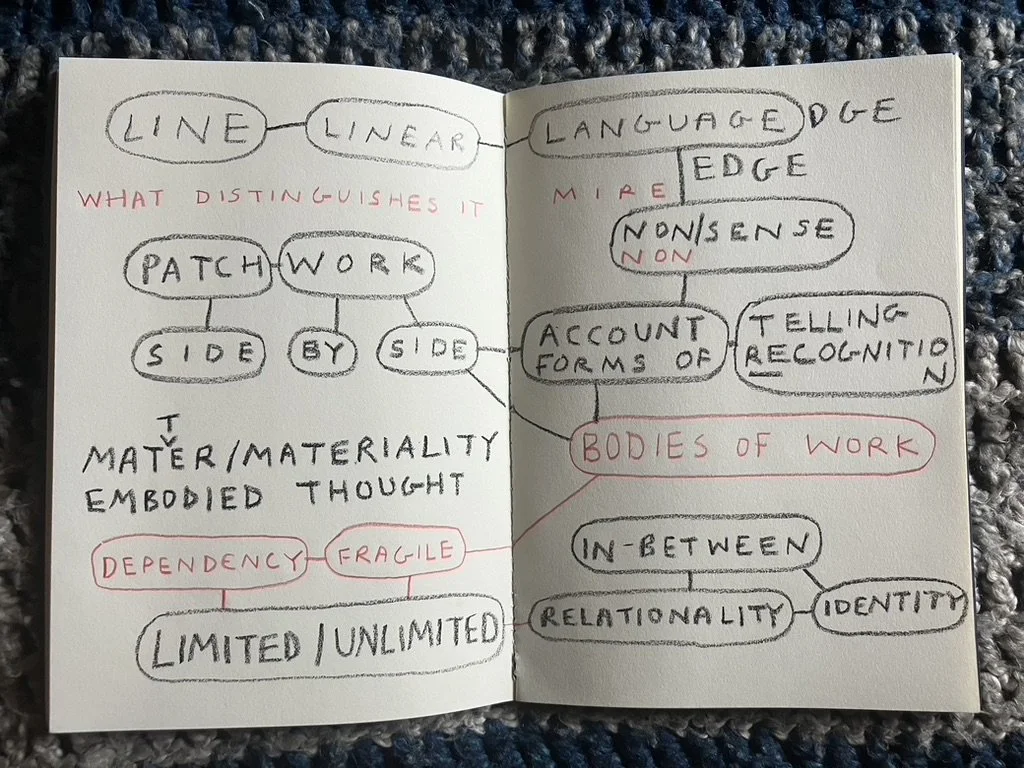 LINE LINEAR
WHAT DISTINGUISHES IT
PATCH WORK
SIDE BY SIDE
T
MATER/MATERIALITY
EMBODIED THOUGHT
DEPENDENCY FRAGILE
LIMITED/UNLIMITED
LANGUAGE DGE
EDGE
MIRE
NON/SENSE
NON
ACCOUNT
FORMS OF
TELLING
RECOGNITIO
N
BODIES OF WORK
IN-BETWEEN
RELATIONALITY IDENTITY